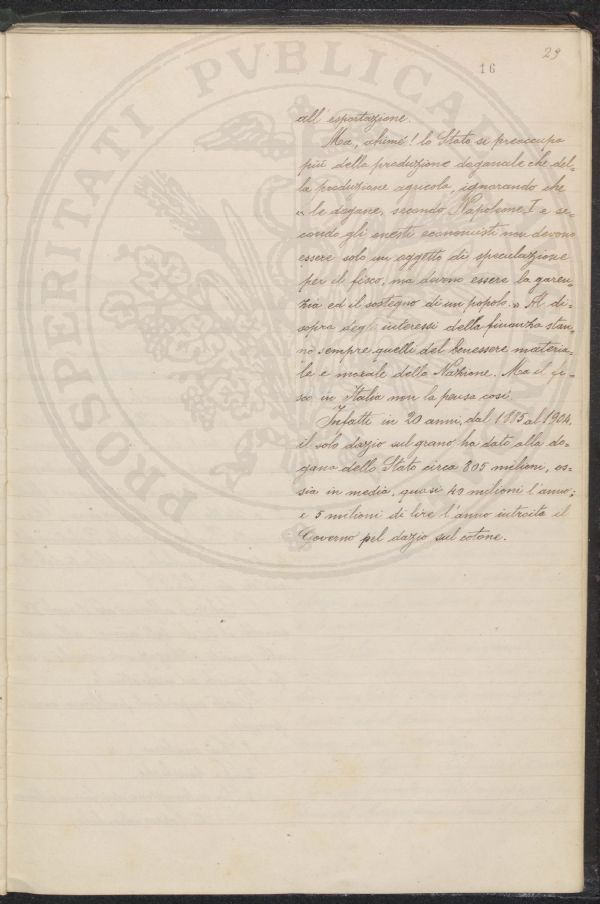 29
16
PROSPERITATI PVBLICAE
all' esportazione.
Ma, ahimé! lo Stato si preoccupa
più della produzione doganale che del=
la produzione agricola, ignorando che
"le dogane, secondo Napoleone I e se=
condo gli onesti economisti non devono
essere solo un oggetto di speculazione
per il fisco, ma devono essere la garen=
zia ed il sostegno di un popolo." Al di=
sopra degli interessi della finanza stan=
no sempre quelli del benessere materia=
le e morale della Nazione. Ma il fi=
sco in Italia non la pensa così.
Infatti in 20 anni, dal 1885 al 1904,
il solo dazio sul grano ha dato alla do=
gana dello Stato circa 805 milioni, os=
sia in media, quasi 40 milioni l'anno;
e 5 milioni di lire l'anno introita il
Governo pel dazio sul cotone.